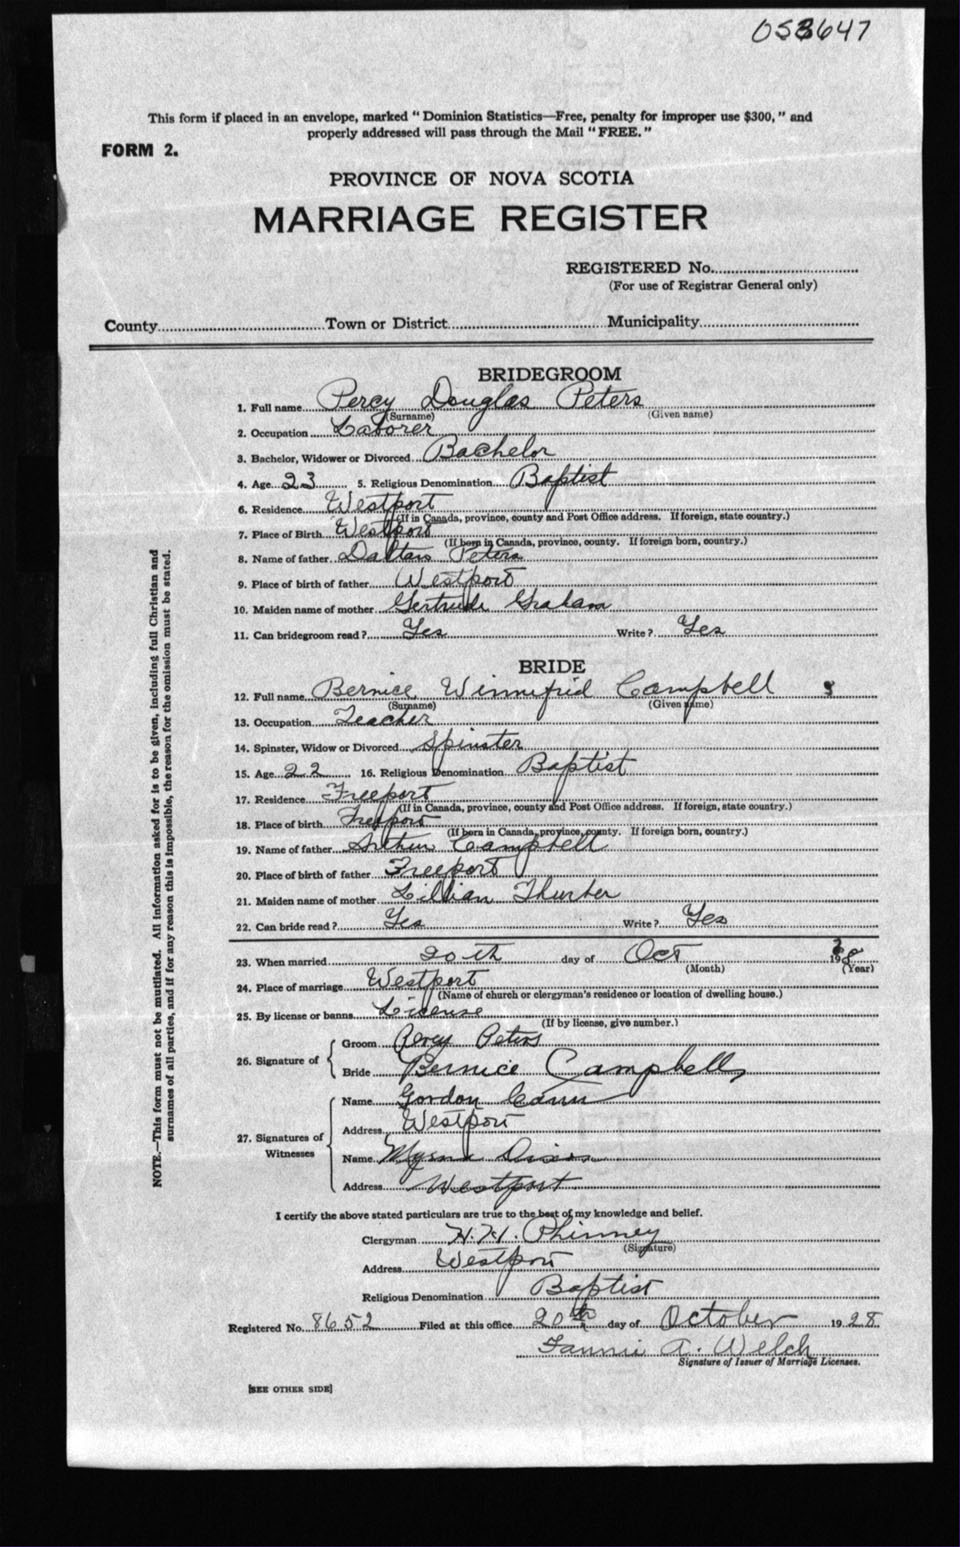 053647
This form if placed in an envelope, marked "Dominion Statistics—Free, penalty for improper use $300," and
properly addressed will pass through the Mail "FREE."
FORM 2.
PROVINCE OF NOVA SCOTIA
MARRIAGE REGISTER
REGISTERED No.
(For use of Registrar General only)
County Town or District Municipality
BRIDEGROOM
1. Full name Percy Douglas Peters
(Surname) (Given name)
2. Occupation Laborer
3. Bachelor, Widower or Divorced Bachelor
4. Age 23 5. Religious Denomination Baptist
6. Residence Westport
(If in Canada, province, county and Post Office address. If foreign, state country.)
7. Place of Birth Westport
(If born in Canada, province, county. If foreign born, country.)
8. Name of father Peters
9. Place of birth of father Westport
10. Maiden name of mother Gertrude Graham
11. Can bridegroom read? Yes Write? Yes
BRIDE
12. Full name Bernice Winnifrid Campbell
(Surname) (Given name)
13. Occupation Teacher
14. Spinster, Widow or Divorced Spinster
15. Age 22 16. Religious Denomination Baptist
17. Residence Freeport
(If in Canada, province, county and Post Office address. If foreign, state country.)
18. Place of birth Freeport
(If born in Canada, province, county. If foreign born, country.)
19. Name of father Arthur Campbell
20. Place of birth of father Freeport
21. Maiden name of mother Lillian Thurber
22. Can bride read? Yes Write? Yes
23. When married 20th day of Oct 1928
(Month) (Year)
24. Place of marriage Westport
(Name of church or clergyman's residence or location of dwelling house.)
25. By license or banns License
(If by license, give number.)
26. Signature of
Groom Percy Peters
Bride Bernice Campbell
27. Signatures of Witnesses
Name Gordon Cann
Address Westport
Name Myrna
Address Westport
I certify the above stated particulars are true to the best of my knowledge and belief.
Clergyman H. H. Phinney
(Signature)
Address Westport
Religious Denomination Baptist
Registered No. 8652 Filed at this office 20th day of October 1928
Fannie A. Welch
Signature of Issuer of Marriage Licenses.
[SEE OTHER SIDE]
NOTE.—This form must not be mutilated. All information asked for is to be given, including full Christian and
surnames of all parties, and if for any reason this is impossible, the reason for the omission must be stated.